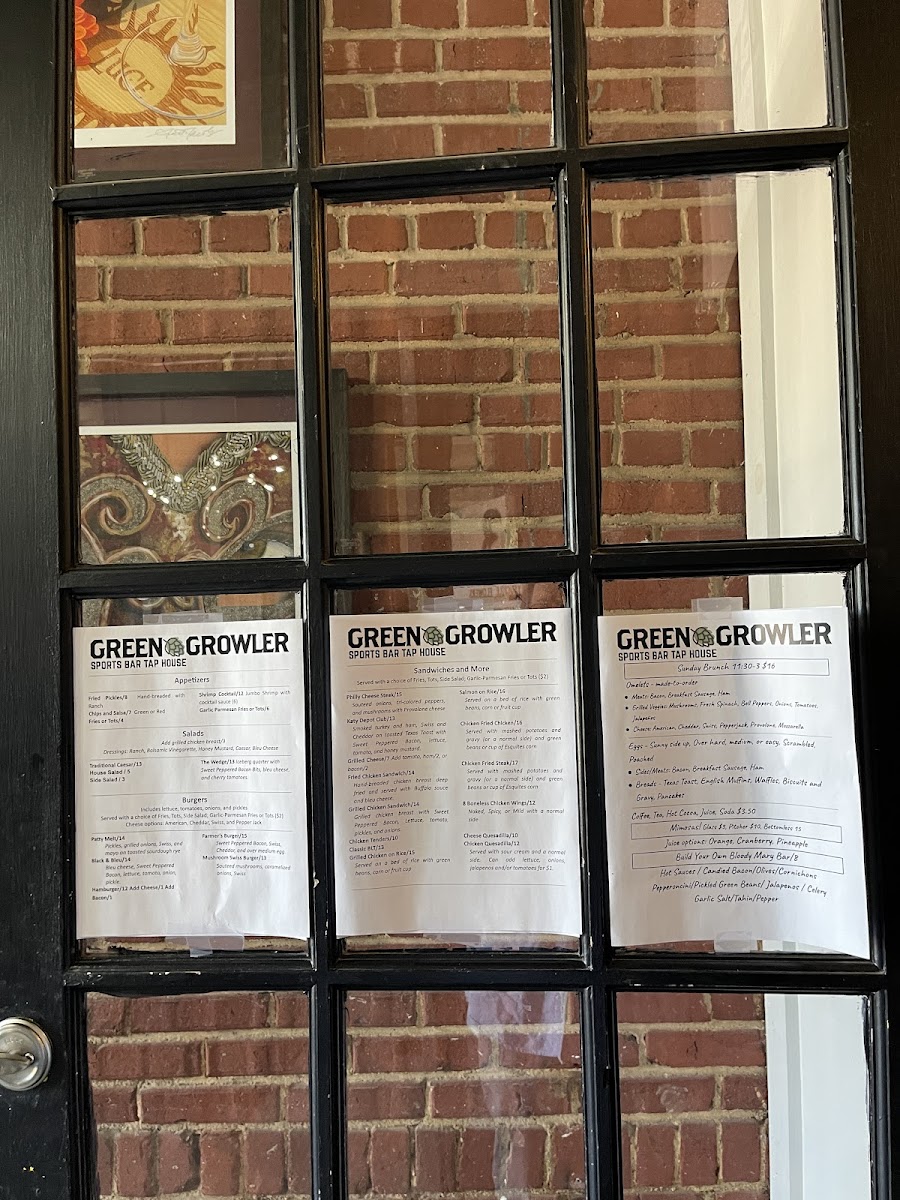 GREEN GROWLER
SPORTS BAR TAP HOUSE
Appetizers
Fried Pickles/8 Hand-breaded, with
Ranch
Chips and Salsa/7 Green or Red
Fries or Tots/4
Shrimp Cocktail/12 Jumbo Shrimp with
cocktail sauce (6)
Garlic-Parmesan Fries or Tots/6
Salads
Add grilled chicken breast/3
Dressings: Ranch, Balsamic Vinegarette, Honey Mustard, Caesar, Bleu Cheese
Traditional Caesar/13
House Salad / 5
Side Salad / 3
The Wedge/13 Iceberg quarter with
Sweet Peppered Bacon Bits, bleu cheese,
and cherry tomatoes.
Burgers
Includes lettuce, tomatoes, onions, and pickles
Served with a choice of Fries, Tots, Side Salad, Garlic-Parmesan Fries or Tots($2)
Cheese options: American, Cheddar, Swiss, and Pepper Jack
Patty Melt/14
Pickles, grilled onions, Swiss, and
mayo on toasted sourdough rye
Black & Bleu/14
Bleu cheese, Sweet Peppered
Bacon, lettuce, tomato, onion,
pickle.
Hamburger/12 Add Cheese/1 Add
Bacon/1
Farmer's Burger/15
Sweet Peppered Bacon, Swiss,
Cheddar, and over medium egg
Mushroom Swiss Burger/13
Sauteed mushrooms, caramelized
onions, Swiss
GREEN GROWLER
SPORTS BAR TAP HOUSE
Sandwiches and More
Served with a choice of Fries, Tots, Side Salad, Garlic-Parmesan Fries or Tots ($2)
Philly Cheese Steak/15
Sauteed onions, tri-colored peppers,
and mushrooms with Provolone cheese
Katy Depot Club/13
Smoked turkey and ham, Swiss and
Cheddar on toasted Texas Toast with
Sweet Peppered Bacon, lettuce,
tomato, and honey mustard.
Grilled Cheese/7 Add tomato, ham/2, or
bacon/2
Fried Chicken Sandwich/14
Hand-breaded chicken breast deep
fried and served with Buffalo sauce
and bleu cheese.
Grilled Chicken Sandwich/14
Grilled chicken breast with Sweet
Peppered Bacon, Lettuce, tomato,
pickles, and onions.
Chicken Tenders/10
Classic BLT/13
Grilled Chicken on Rice/15
Served on a bed of rice with green
beans, corn or fruit cup
Salmon on Rice/16
Served on a bed of rice with green
beans, corn or fruit cup
Chicken Fried Chicken/16
Served with mashed potatoes and
gravy (for a normal side) and green
beans or cup of Esquites corn
Chicken Fried Steak/17
Served with mashed potatoes and
gravy (for a normal side) and green
beans or cup of Esquites corn
8 Boneless Chicken Wings/12
Naked, Spicy, or Mild with a normal
side
Cheese Quesadilla/10
Chicken Quesadilla/12
Served with sour cream and a normal
side. Can add lettuce, onions,
jalapenos and/or tomatoes for $1.
GREEN GROWLER
SPORTS BAR TAP HOUSE
Sunday Brunch 11:30-3 $16
Omelets - made-to-order
• Meats: Bacon, Breakfast Sausage, Ham
• Grilled Veggies: Mushrooms, Fresh Spinach, Bell Peppers, Onions, Tomatoes,
Jalapeños
• Cheese: American, Cheddar, Swiss, Pepperjack, Provolone, Mozzarella
Eggs - Sunny side up, Over hard, medium, or easy, Scrambled,
Poached
• Sides/Meats: Bacon, Breakfast Sausage, Ham
• Breads - Texas Toast, English Muffins, Waffles, Biscuits and
Gravy, Pancakes
Coffee, Tea, Hot Cocoa, Juice, Soda $3.50
Juice options: Orange, Cranberry, Pineapple
Build Your Own Bloody Mary Bar/8
Hot Sauces / Candied Bacon/Olives/Cornichons
Pepperoncini/Pickled Green Beans/ Jalapenos / Celery
Garlic Salt/Tahin/Pepper